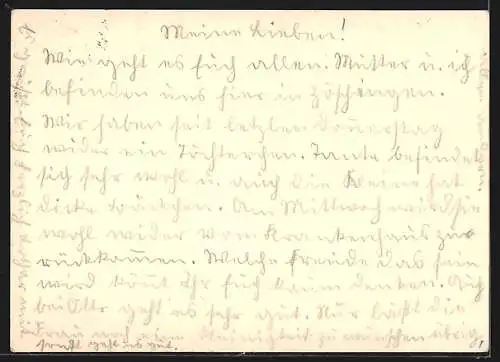 Meine Lieben!
Wie geht es Euch allen. Mutter u. ich
befinden uns hier in Zöschingen.
Wir haben seit letzten Donnerstag
wider ein Töchterchen. Tante befindet
sich sehr wohl u. auch die Kleine hat
dicke Bäckchen. Am Mittwoch wird sie
wohl wider vom Krankenhaus zu
rückkommen. Welche Freude das sein
wird könnt Ihr Euch kaum denken. Auch
bei geht es sehr gut. Nur läßt die
Frau noch eine Kleinigkeit zu wünschen übrig
sonst geht es gut.